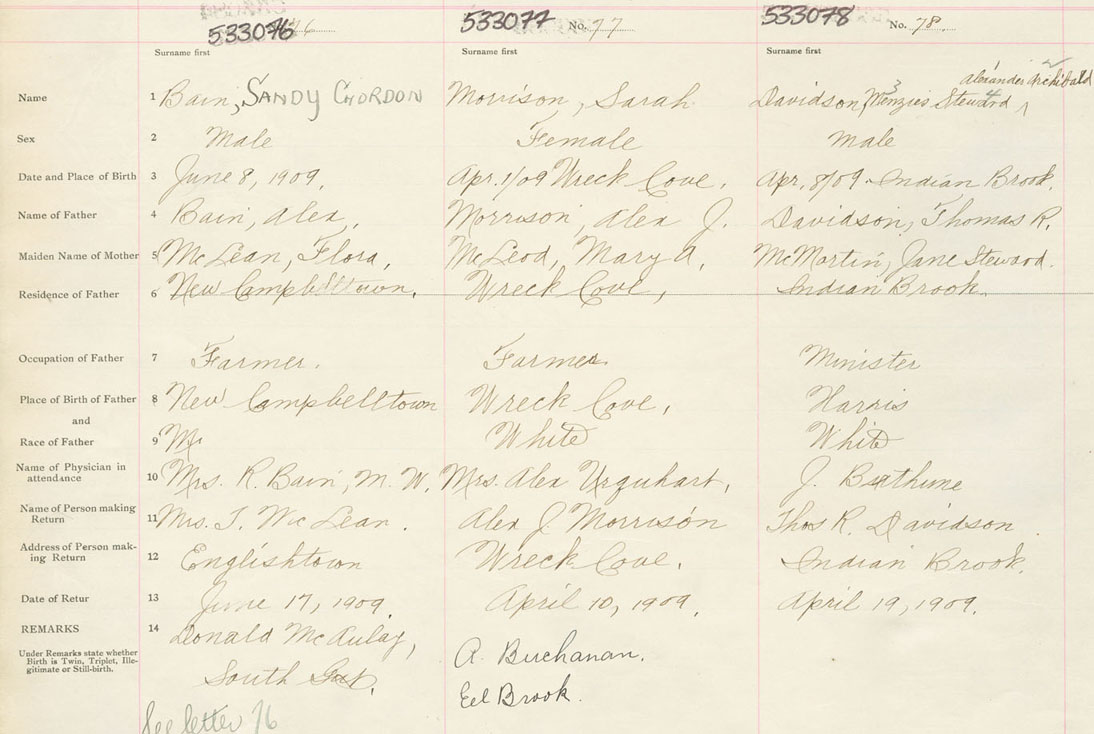 533076 533077 No. 77 533078 No. 78
Surname first Surname first Surname first
Alexander Archibald
Name 1 Bain, SANDY GHORDON Morrison, Sarah Davidson, Menzies Steward
Sex 2 Male Female Male
Date and Place of Birth 3 June 8, 1909, Apr. 1/09 Wreck Cove, Apr. 8/09 Indian Brook.
Name of Father 4 Bain, Alex, Morrison, Alex J. Davidson, Thomas R.
Maiden Name of Mother 5 McLean, Flora, McLeod, Mary A, McMartin, Jane Steward.
Residence of Father 6 New Campbelltown, Wreck Cove, Indian Brook.
Occupation of Father 7 Farmer. Farmer Minister
Place of Birth of Father 8 New Campbelltown Wreck Cove, Harris
and
Race of Father 9 White White
Name of Physician in
attendance 10 Mrs. R. Bain, M. W. Mrs. Alex Urquhart, J. Bethune
Name of Person making
Return 11 Mrs. J. McLean. Alex J. Morrison Thos R. Davidson.
Address of Person mak-
ing Return 12 Englishtown Wreck Cove, Indian Brook.
Date of Retur 13 June 17, 1909. April 10, 1909. April 19, 1909.
REMARKS 14 Donald McAulay,
Under Remarks state whether
Birth is Twin, Triplet, Ille-
gitimate or Still-birth.
A. Buchanan.
South Gut,
Eel Brook.
See letter 76